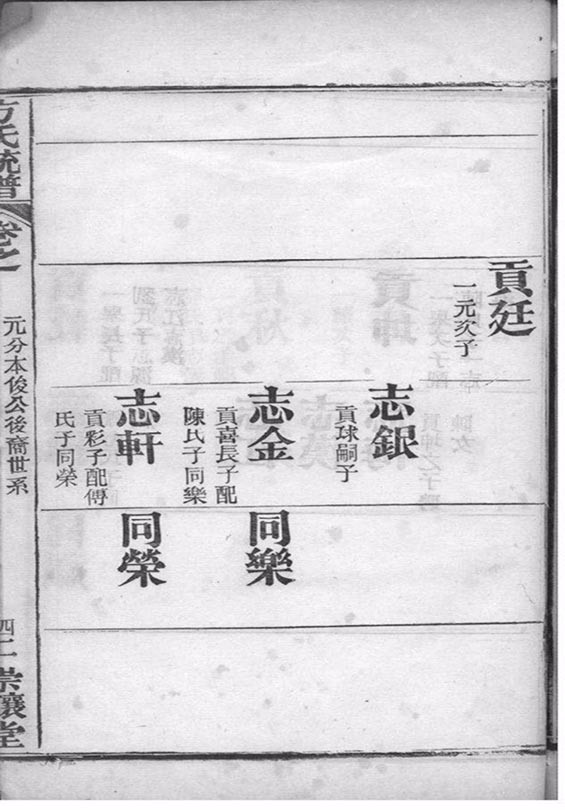 貢廷
一元次子
志銀
貢球嗣子
志金
貢喜長子配
陳氏子同樂
志軒
貢彩子配傅
氏子同榮
同樂
同榮
方氏統譜
卷之一
元分本俊公後裔世系
四二
崇讓堂